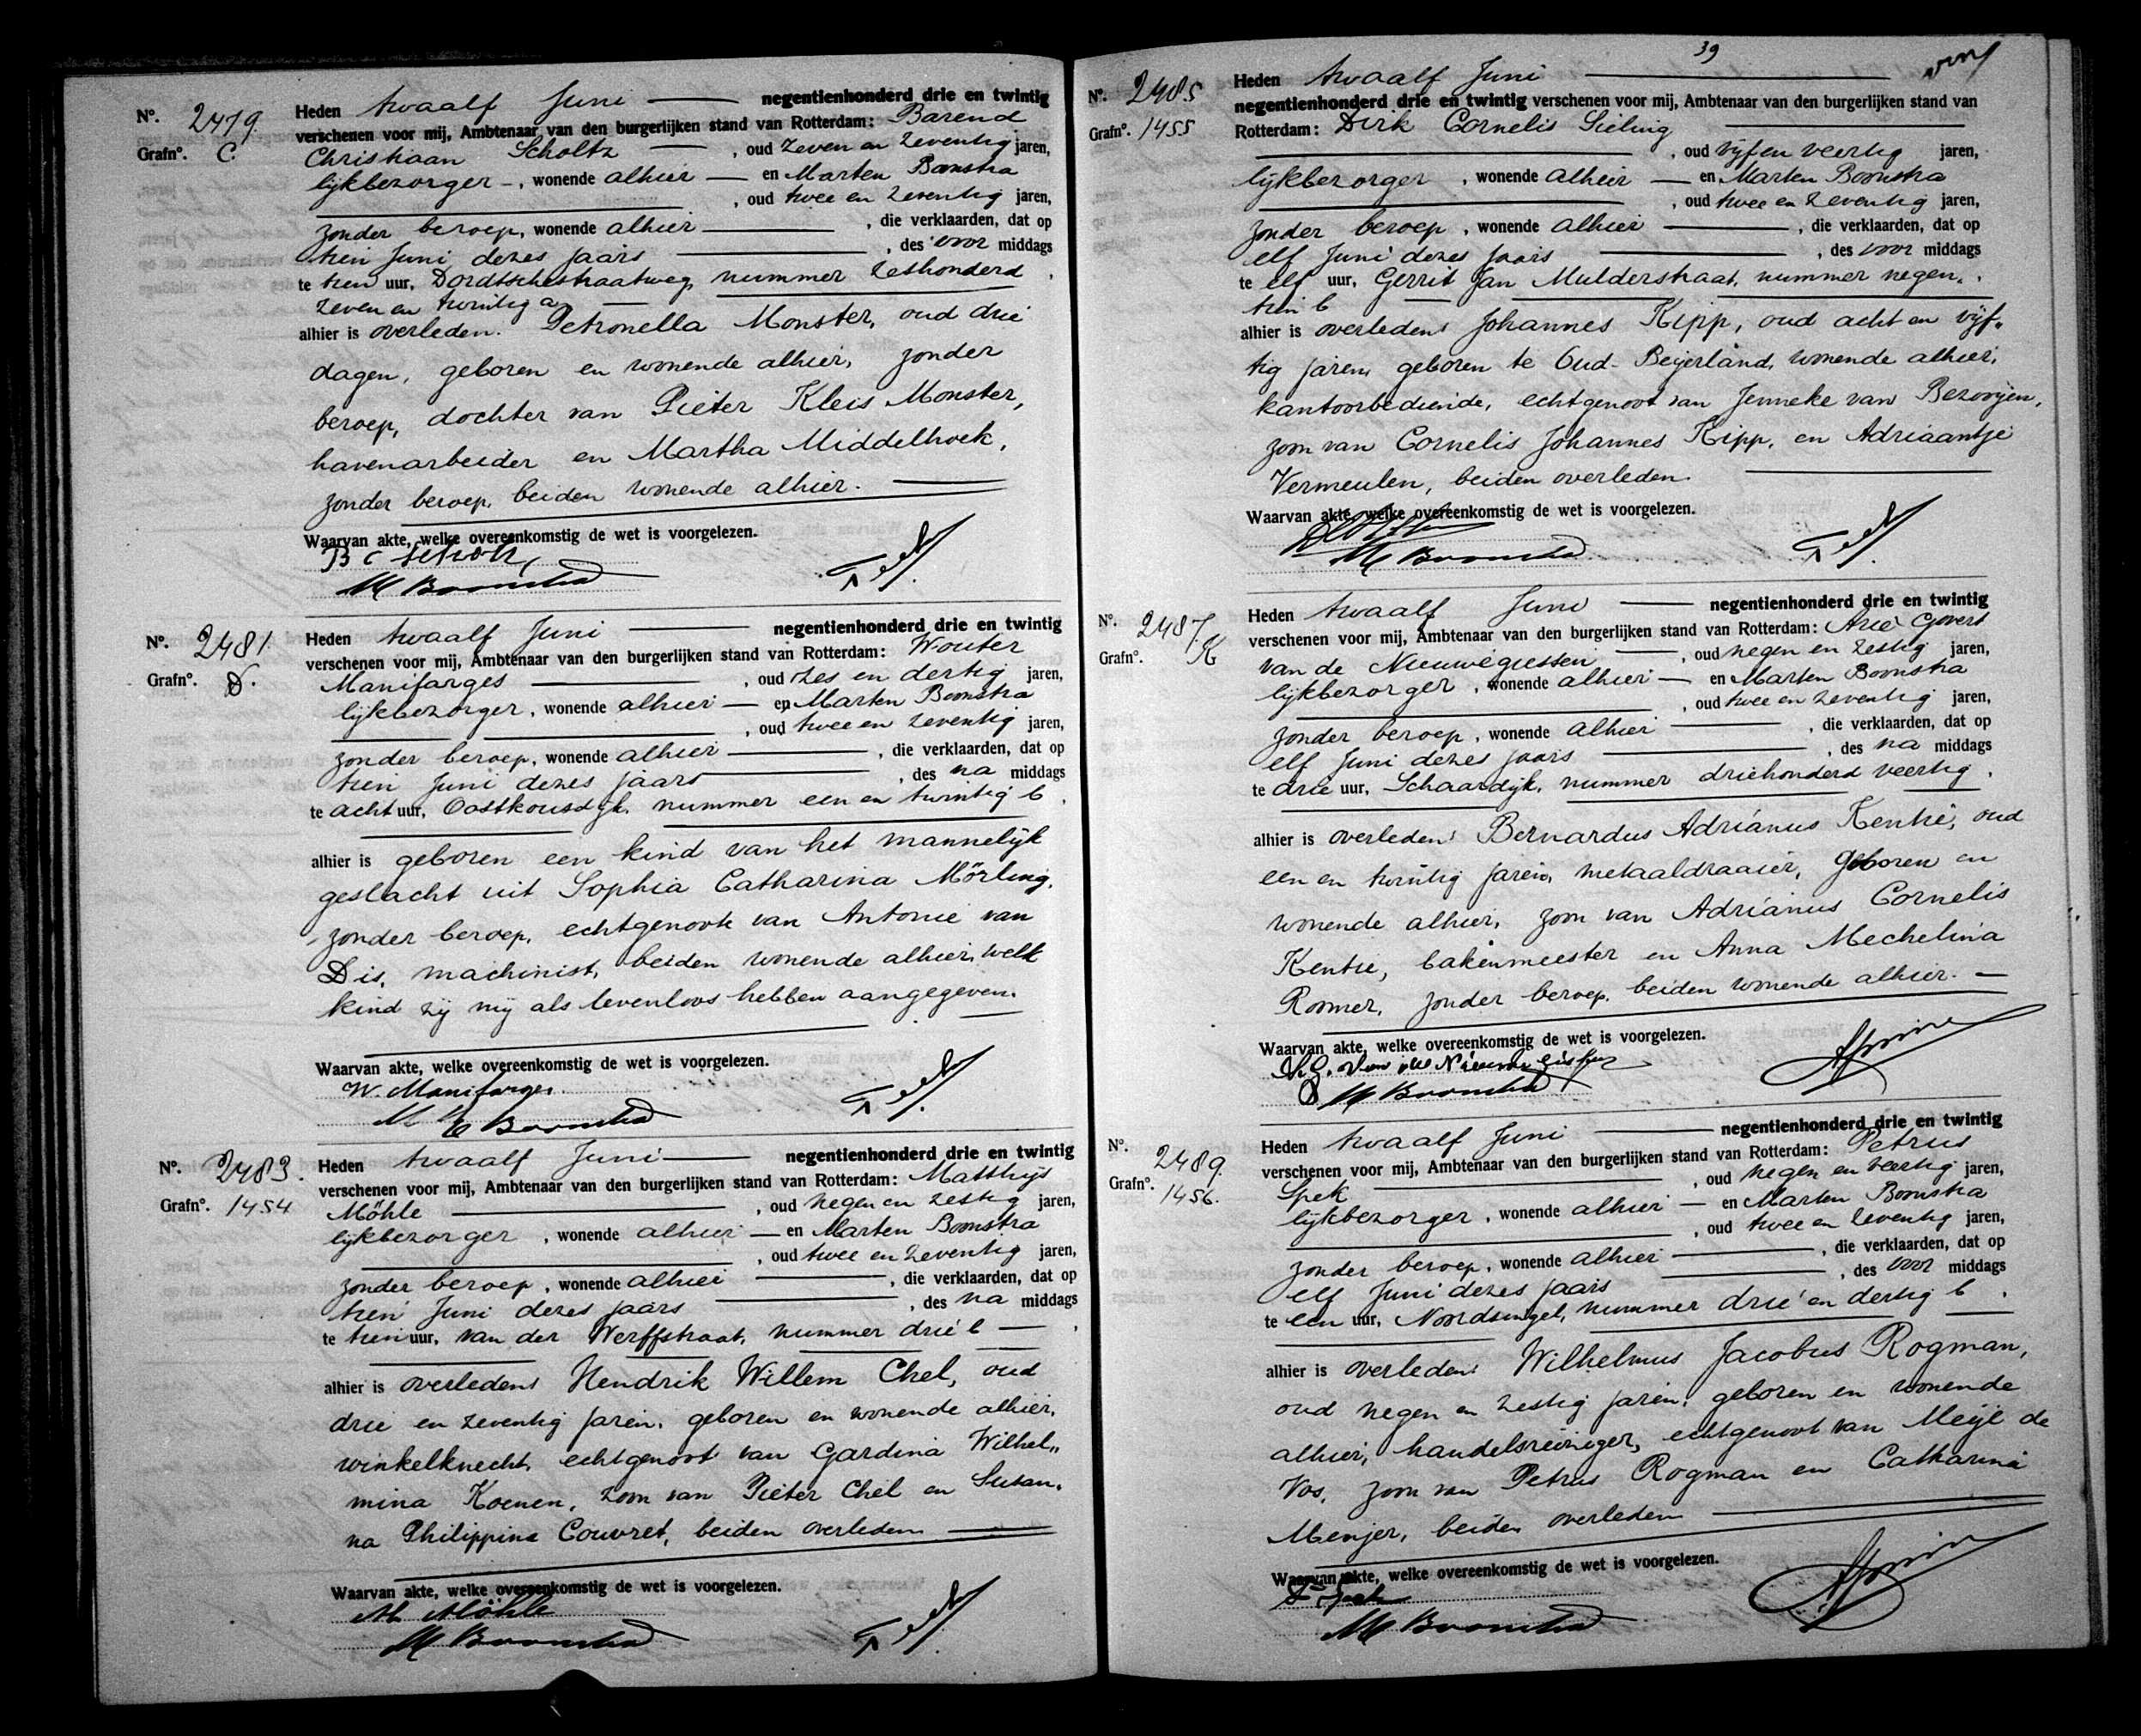 Nº. 2479.
Grafnº. C.
Heden twaalf Juni negentienhonderd drie en twintig
verschenen voor mij, Ambtenaar van den burgerlijken stand van Rotterdam: Barend
Christiaan Scholtz, oud zeven en zeventig jaren,
lijkbezorger, wonende alhier en Marten Boonstra
, oud twee en zeventig jaren,
zonder beroep, wonende alhier, die verklaarden, dat op
tien Juni dezes jaars, des voor middags
te tien uur, Dordtschestraatweg, nummer zeshonderd
zeven en twintig a
alhier is overleden: Petronella Monster, oud drie
dagen, geboren en wonende alhier, zonder
beroep, dochter van Pieter Kleis Monster,
havenarbeider en Martha Middelhoek,
zonder beroep, beiden wonende alhier.
Waarvan akte, welke overeenkomstig de wet is voorgelezen.
B C Scholtz
M Boonstra
Nº. 2481.
Grafnº. D.
Heden twaalf Juni negentienhonderd drie en twintig
verschenen voor mij, Ambtenaar van den burgerlijken stand van Rotterdam: Wouter
Manifarges, oud zes en dertig jaren,
lijkbezorger, wonende alhier en Marten Boonstra
, oud twee en zeventig jaren,
zonder beroep, wonende alhier, die verklaarden, dat op
tien Juni dezes jaars, des na middags
te acht uur, Oostkousdijk, nummer een en twintig b.
alhier is geboren een kind van het mannelijk
geslacht uit Sophia Catharina Mörling,
zonder beroep, echtgenoote van Antonie van
Dis, machinist, beiden wonende alhier, welk
kind zij mij als levenloos hebben aangegeven.
Waarvan akte, welke overeenkomstig de wet is voorgelezen.
W. Manifarges
M Boonstra
Nº. 2483.
Grafnº. 1454
Heden twaalf Juni negentienhonderd drie en twintig
verschenen voor mij, Ambtenaar van den burgerlijken stand van Rotterdam: Matthijs
Möhle, oud negen en zestig jaren,
lijkbezorger, wonende alhier en Marten Boonstra
, oud twee en zeventig jaren,
zonder beroep, wonende alhier, die verklaarden, dat op
tien Juni dezes jaars, des na middags
te tien uur, van der Werffstraat, nummer drie b
alhier is overleden: Hendrik Willem Chel, oud
drie en zeventig jaren, geboren en wonende alhier,
winkelknecht, echtgenoot van Gardina Wilhel„
mina Koenen, zoon van Pieter Chel en Susan„
na Philippina Couvret, beiden overleden
Waarvan akte, welke overeenkomstig de wet is voorgelezen.
M Möhle
M Boonstra
39
Nº. 2485
Grafnº. 1455
Heden twaalf Juni
negentienhonderd drie en twintig verschenen voor mij, Ambtenaar van den burgerlijken stand van
Rotterdam: Dirk Cornelis Sieling
, oud vijf en veertig jaren,
lijkbezorger, wonende alhier en Marten Boonstra
, oud twee en zeventig jaren,
zonder beroep, wonende alhier, die verklaarden, dat op
elf Juni dezes jaars, des voor middags
te elf uur, Gerrit Jan Mulderstraat, nummer negen„
tien b
alhier is overleden: Johannes Kipp, oud acht en vijf„
tig jaren, geboren te Oud-Beijerland, wonende alhier,
kantoorbediende, echtgenoot van Jenneke van Bezooijen,
zoon van Cornelis Johannes Kipp, en Adriaantje
Vermeulen, beiden overleden.
Waarvan akte, welke overeenkomstig de wet is voorgelezen.
M Boonstra
Nº. 2487.
Grafnº. K
Heden twaalf Juni negentienhonderd drie en twintig
verschenen voor mij, Ambtenaar van den burgerlijken stand van Rotterdam: Arie Govert
van de Nieuwegiessen, oud negen en zestig jaren,
lijkbezorger, wonende alhier en Marten Boonstra
, oud twee en zeventig jaren,
zonder beroep, wonende alhier, die verklaarden, dat op
elf Juni dezes jaars, des na middags
te drie uur, Schaardijk, nummer driehonderd veertig.
alhier is overleden: Bernardus Adrianus Kentie, oud
een en twintig jaren, metaaldraaier, geboren en
wonende alhier, zoon van Adrianus Cornelis
Kentie, bakenmeester en Anna Mechelina
Roomer, zonder beroep, beiden wonende alhier.
Waarvan akte, welke overeenkomstig de wet is voorgelezen.
A.G. van de Nieuwe Giessen
M Boonstra
Nº. 2489.
Grafnº. 1456.
Heden twaalf Juni negentienhonderd drie en twintig
verschenen voor mij, Ambtenaar van den burgerlijken stand van Rotterdam: Petrus
Spek, oud negen en veertig jaren,
lijkbezorger, wonende alhier en Marten Boonstra
, oud twee en zeventig jaren,
zonder beroep, wonende alhier, die verklaarden, dat op
elf Juni dezes jaars, des voor middags
te een uur, Noordsingel, nummer drie en dertig b.
alhier is overleden: Wilhelmus Jacobus Rogman,
oud negen en zestig jaren, geboren en wonende
alhier, handelsreiziger, echtgenoot van Meije de
Vos, zoon van Petrus Rogman en Catharina
Menjer, beiden overleden
Waarvan akte, welke overeenkomstig de wet is voorgelezen.
P Spek
M Boonstra